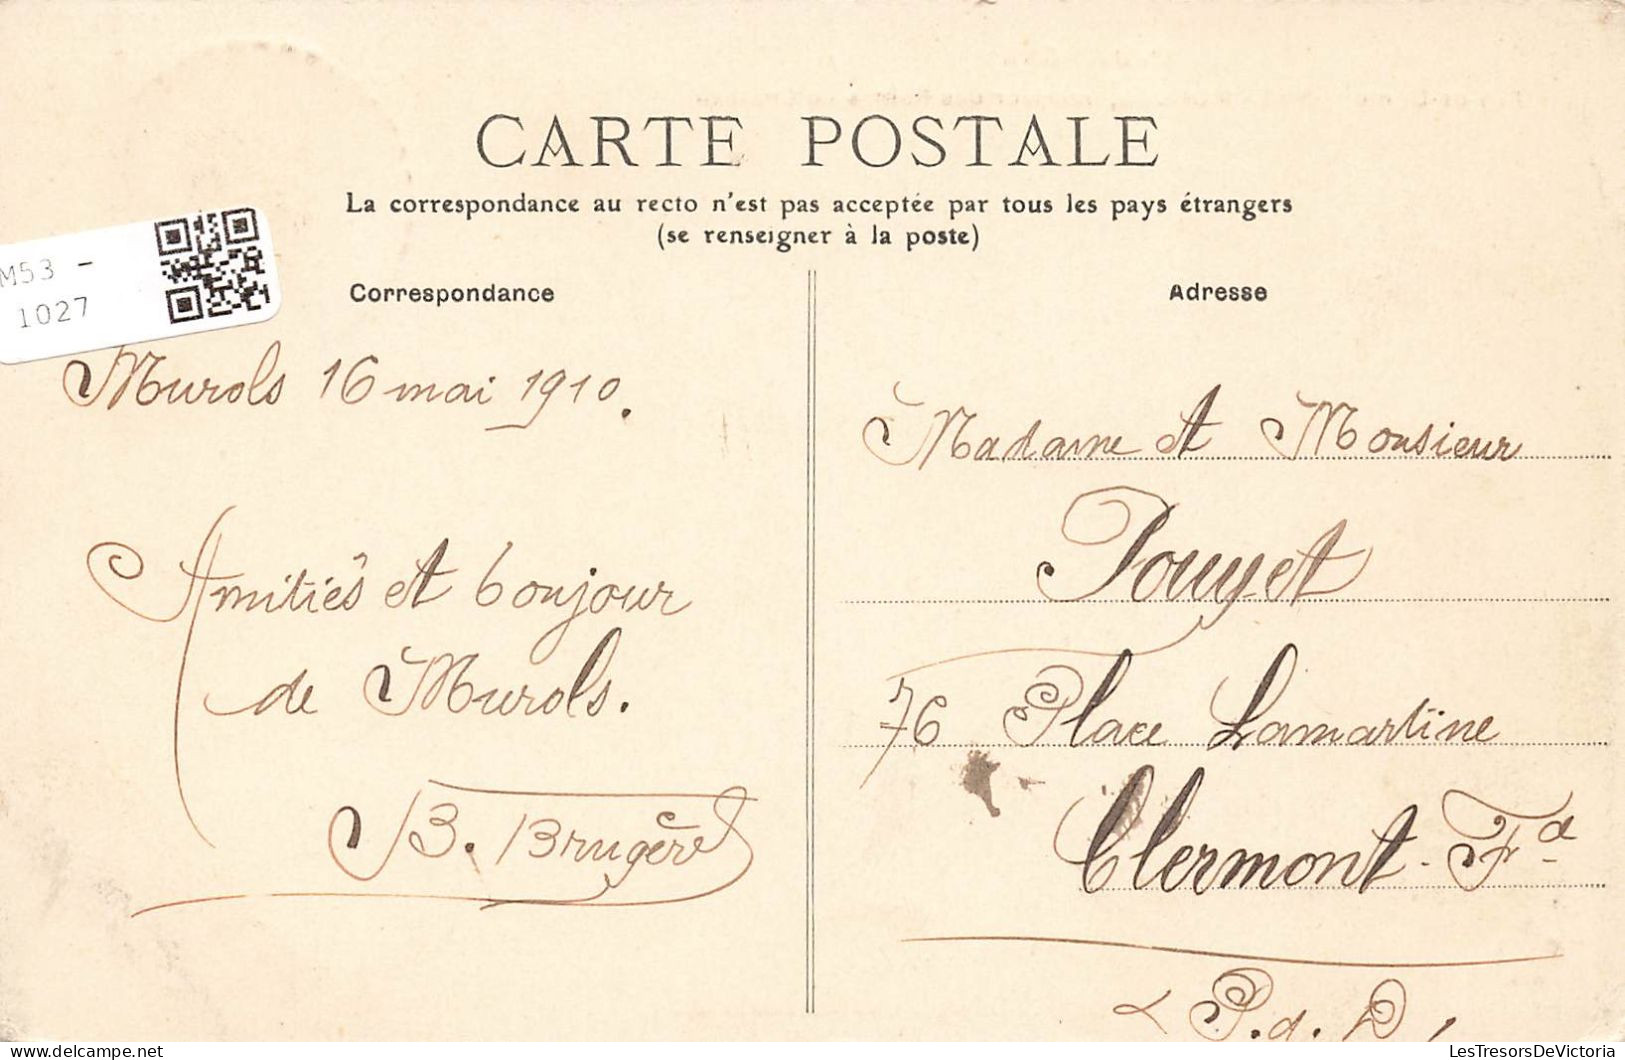 CARTE POSTALE
La correspondance au recto n'est pas acceptée par tous les pays étrangers
(se renseigner à la poste)
M53 -
1027
Correspondance
Murols 16 mai 1910.
Amitiés et bonjour
de Murols.
B. Brugère
Adresse
Madame et Monsieur
Pouyet
76 Place Lamartine
Clermont-Fd
P.d.D.
LesTresorsDeVictoria